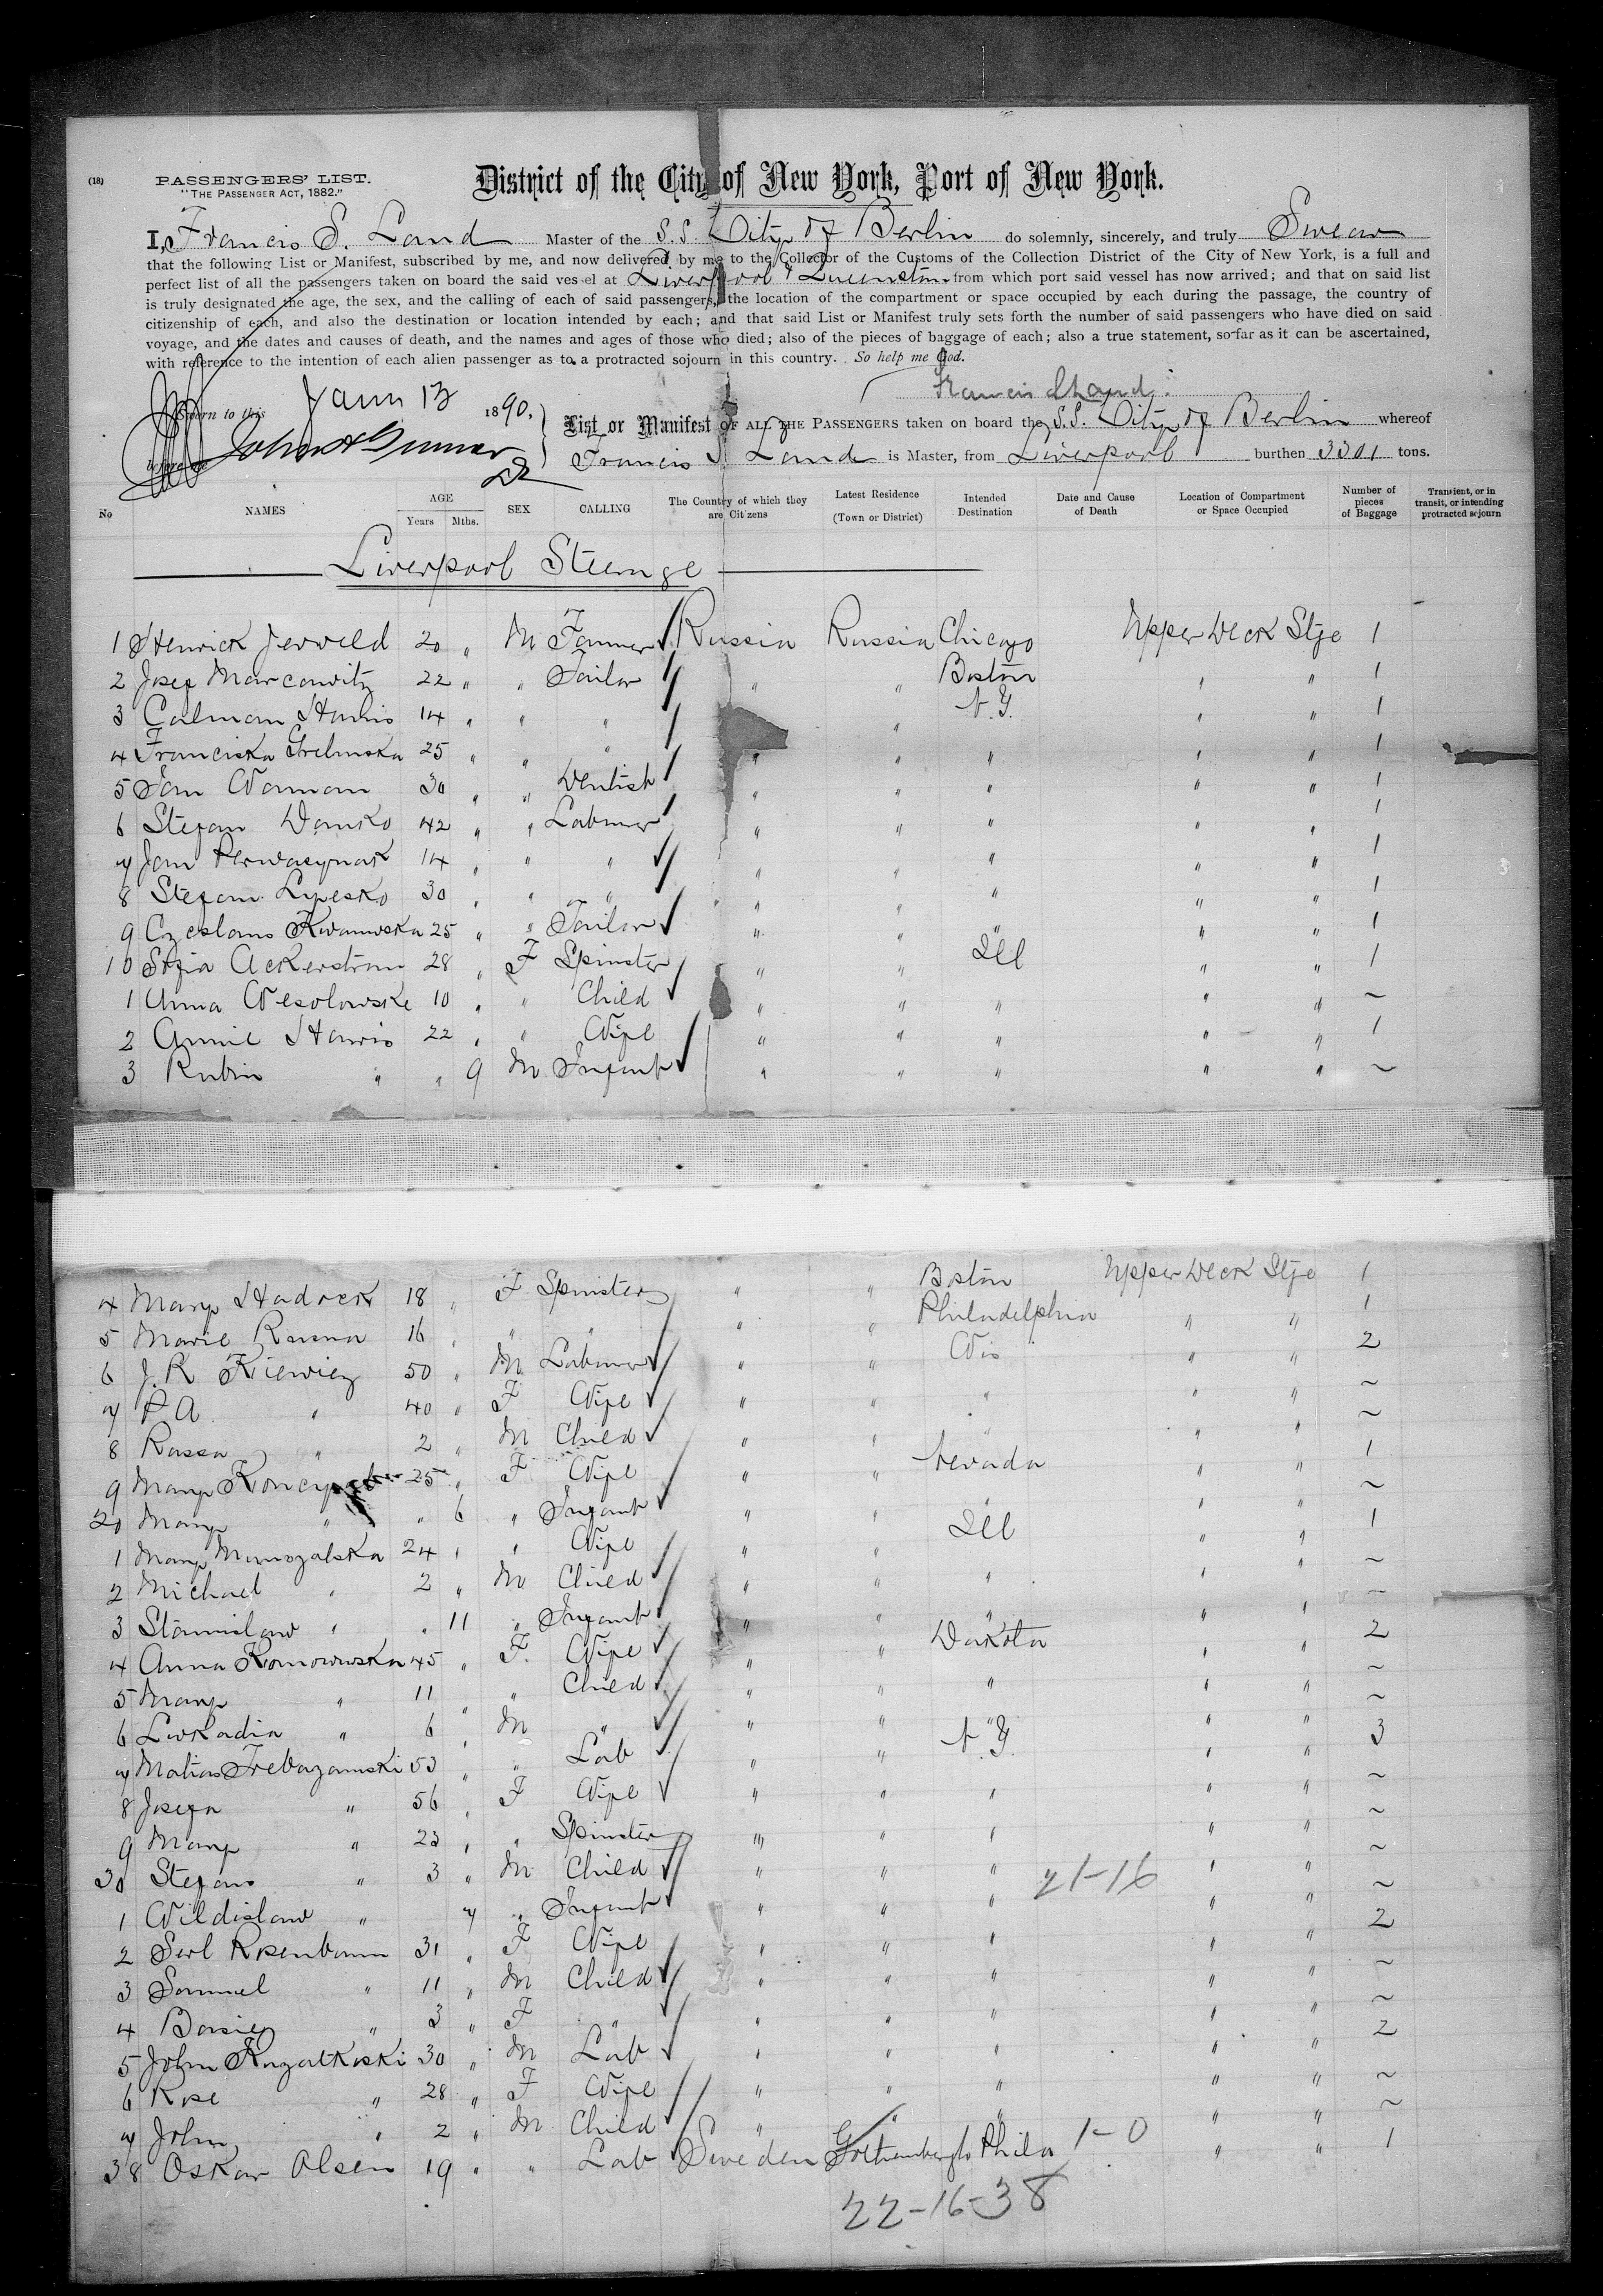 (18)
PASSENGERS' LIST.
"THE PASSENGER ACT, 1882."
District of the City of New York, Port of New York.
I, Francis S. Land Master of the S.S. City of Berlin do solemnly, sincerely, and truly Swear
that the following List or Manifest, subscribed by me, and now delivered by me to the Collector of the Customs of the Collection District of the City of New York, is a full and
perfect list of all the passengers taken on board the said vessel at Liverpool & Queenstown from which port said vessel has now arrived; and that on said list
is truly designated the age, the sex, and the calling of each of said passengers, the location of the compartment or space occupied by each during the passage, the country of
citizenship of each, and also the destination or location intended by each; and that said List or Manifest truly sets forth the number of said passengers who have died on said
voyage, and the dates and causes of death, and the names and ages of those who died; also of the pieces of baggage of each; also a true statement, so far as it can be ascertained,
with reference to the intention of each alien passenger as to a protracted sojourn in this country. So help me God.
Francis S Land
Sworn to this Jany 13 1890,
before me
List or Manifest OF ALL THE PASSENGERS taken on board the S.S. City of Berlin whereof
Francis S. Land is Master, from Liverpool burthen 3301 tons.
No NAMES AGE Years Mths. SEX CALLING The Country of which they are Citizens Latest Residence (Town or District) Intended Destination Date and Cause of Death Location of Compartment or Space Occupied Number of pieces of Baggage Transient, or in transit, or intending protracted sojourn
Liverpool Steerage
1 Henrick Jerveld 20 " M Farmer Russia Russia Chicago Upper Deck Stge 1
2 Josef Marcowitz 22 " " Tailor " " Boston " " 1
3 Calman Harris 14 " " " " N.Y. " " 1
4 Franciska 25 " " " " " " " " 1
5 Jan Warman 30 " " Dentist " " " " " 1
6 Stefan Danko 42 " " Labourer " " " " " 1
7 Jan 14 " " " " " " " " 1
8 Stefan Lypesko 30 " " " " " " " " 1
9 Czeslans 25 " " Tailor " " " " " 1
10 Sofia Ackerstrom 28 " F Spinster " " Ill " " 1
1 Anna Wesolowske 10 " " Child " " " " " ~
2 Annie Harris 22 " " Wife " " " " " 1
3 Rubin " " 9 M Infant " " " " " ~
4 Mary Hadrek 18 " F Spinster " " Boston Upper Deck Stge 1
5 Marie Rasma 16 " " " " " Philadelphia " " 1
6 J. R Kiewiez 50 " M Labourer " " Wis " " 2
7 P A " 40 " F Wife " " " " " ~
8 Rassa " 2 " M Child " " " " " ~
9 Mary 25 " F Wife " " Nevada " " 1
20 Mary " " 6 " Infant " " " " " ~
1 Mary 24 " " Wife " " Ill " " 1
2 Michael " 2 " M Child " " " " " ~
3 Stanislaw " " 11 " Infant " " " " " ~
4 Anna 45 " F. Wife " " Dakota " " 2
5 Mary " 11 " " Child " " " " " ~
6 Leokadia " 6 " M " " " " " " ~
7 Matias 53 " " Lab " " N.Y. " " 3
8 Josefa " 56 " F Wife " " " " " ~
9 Mary " 23 " " Spinster " " " " " ~
30 Stefans " 3 " M Child " " " 21-16 " " ~
1 Wildislaw " 7 " Infant " " " " " ~
2 Serl Rosenbaum 31 " F Wife " " " " " 2
3 Samuel " 11 " M Child " " " " " ~
4 Basie " 3 " F " " " " " " ~
5 John Kazatkoski 30 " M Lab " " " " " 2
6 Rose " 28 " F Wife " " " " " ~
7 John " 2 " M Child " " " " " ~
38 Oskar Olsen 19 " " Lab Sweden Gothenberg Phila 1-0 " " 1
22-16-38